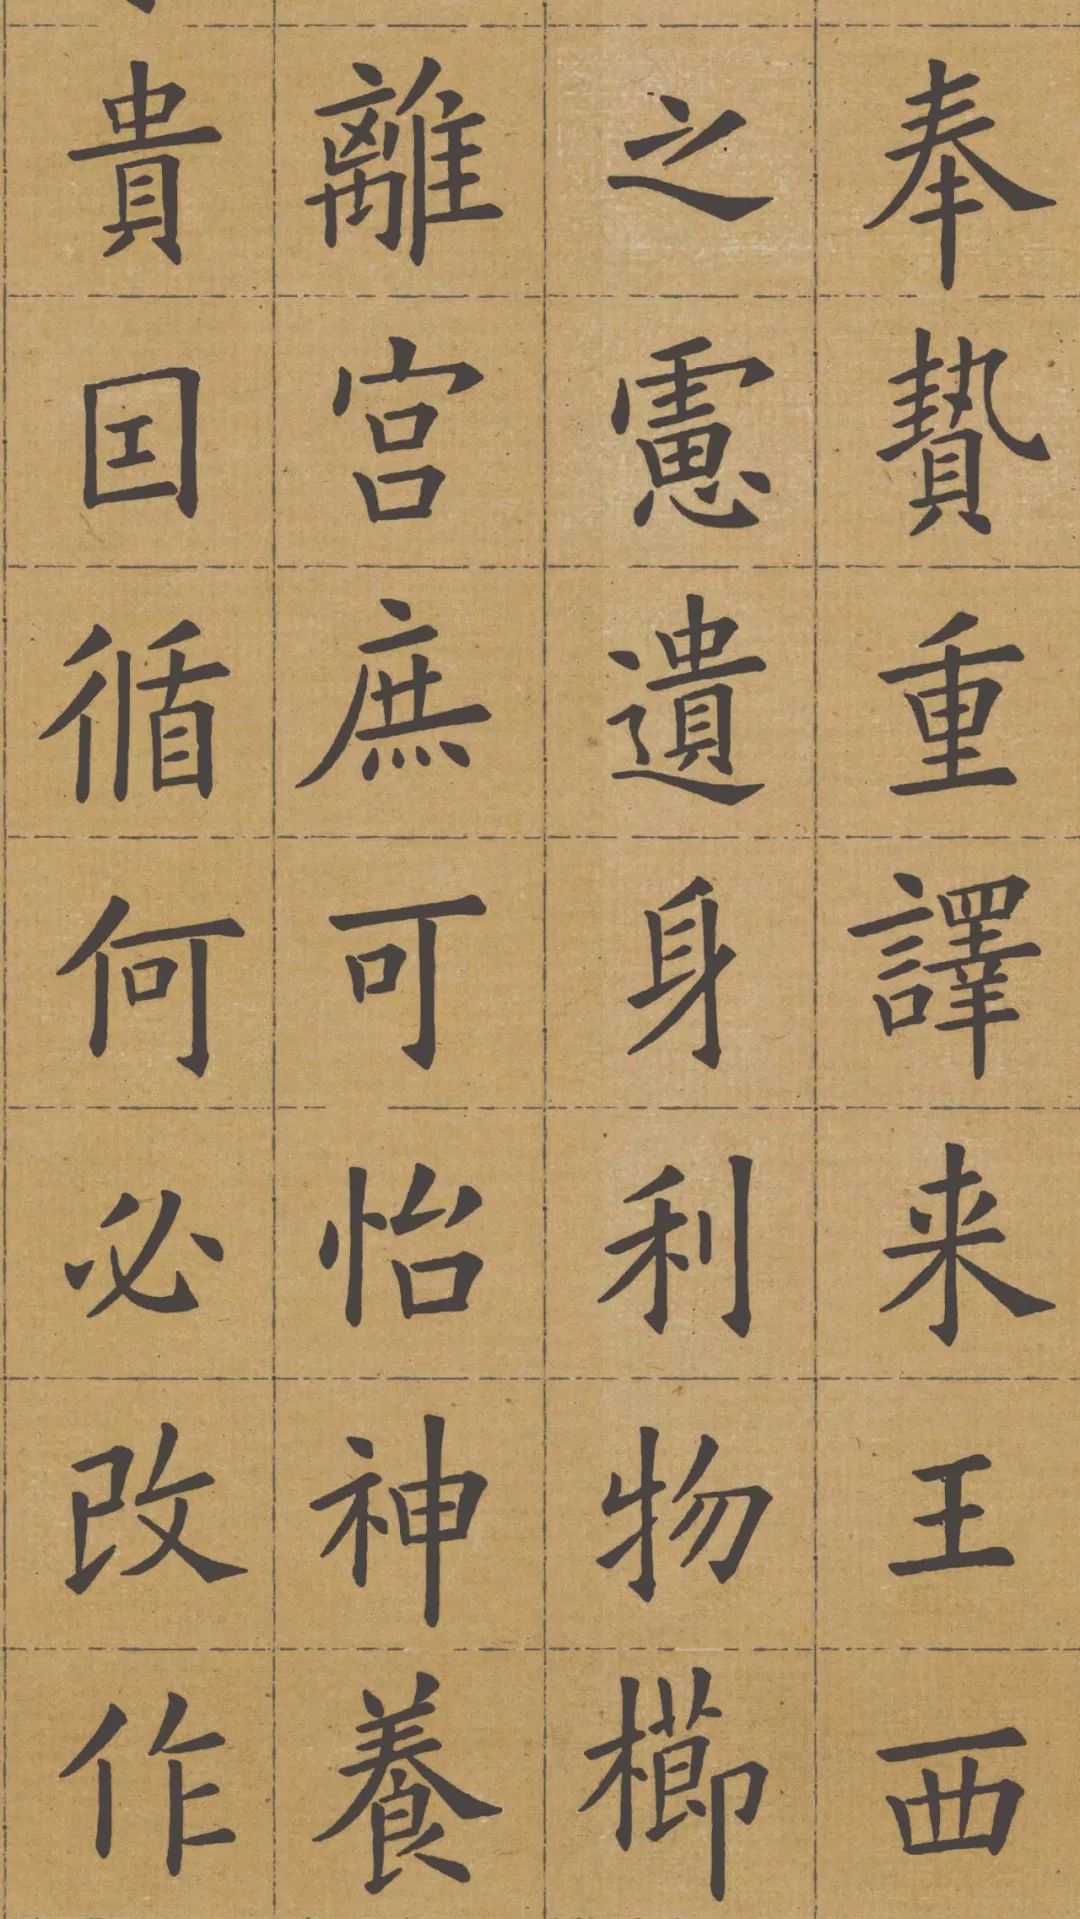 奉贄重譯来王西
之慮遺身利物櫛
離宮庶可怡神養
貴囙循何必改作